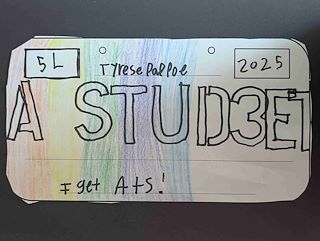 5L
Tyrese Palpoe
2025
A STUD3ET
I get A+S!